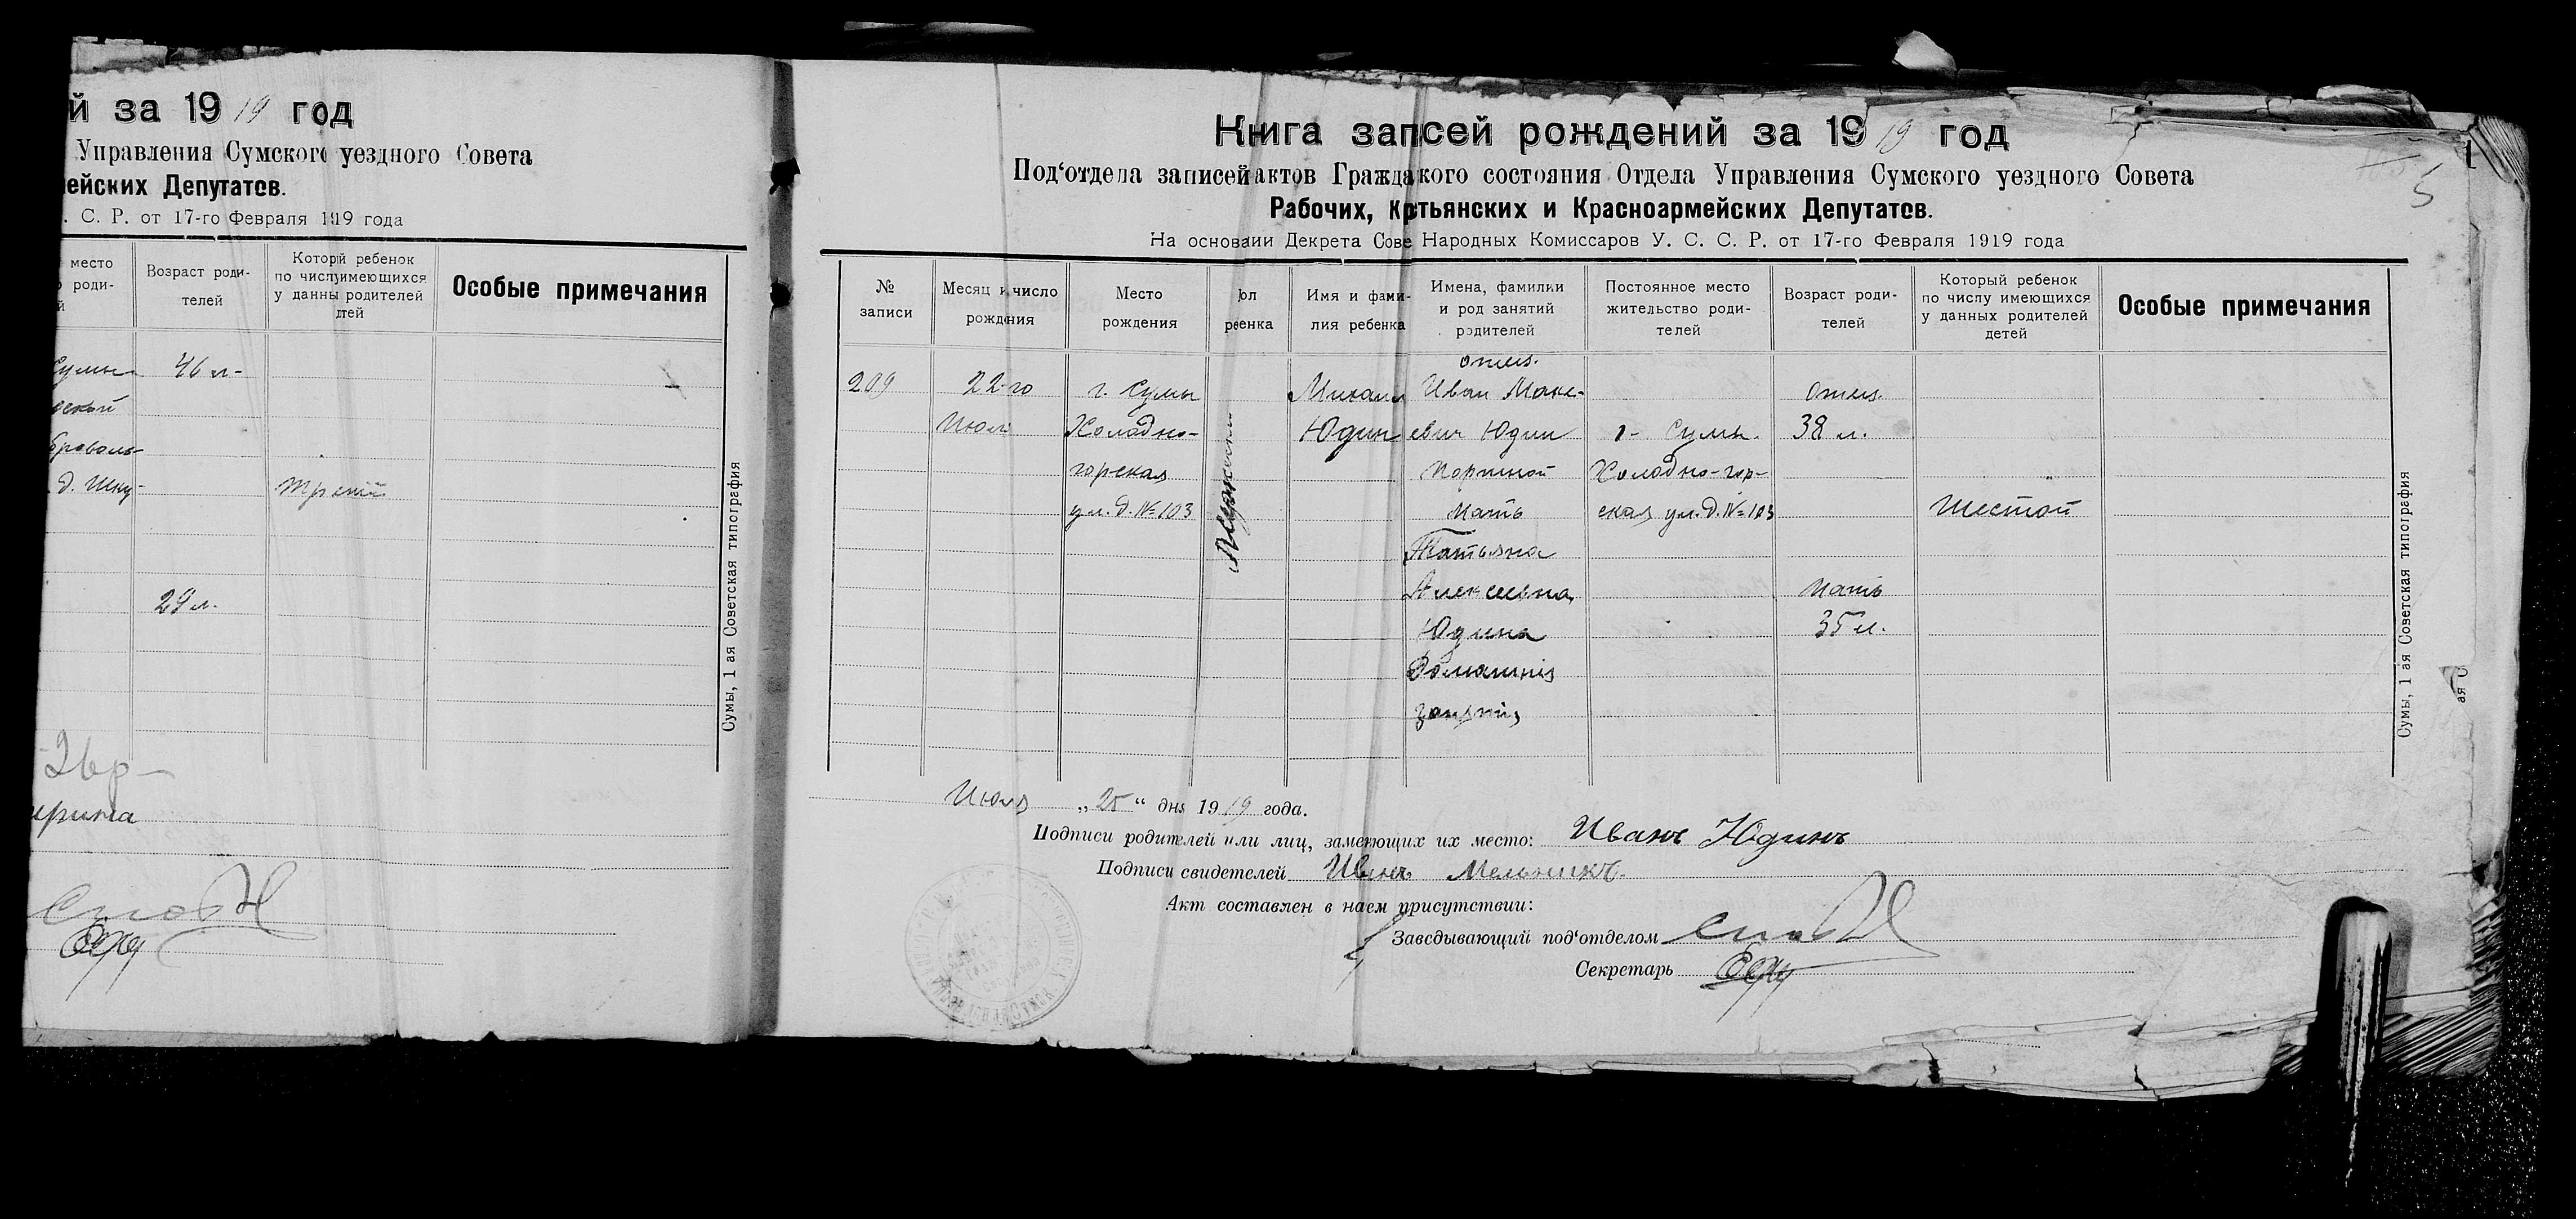 й за 1919 год
Управления Сумского уездного Совета
ейских Депутатов.
. С. Р. от 17-го Февраля 1919 года
место
роди-
й
Возраст роди-
телей
Который ребенок
по числу имеющихся
у данных родителей
детей
Особые примечания
Сумы
46 л-
ской
д.
третий
29 л.
Сумы, 1 ая Советская типография
5
Книга запсей рождений за 1919 год
Под‘отдела записей актов Граждакого состояния Отдела Управления Сумского уездного Совета
Рабочих, Кртьянских и Красноармейских Депутатов.
На основаии Декрета Сове Народных Комиссаров У. С. С. Р. от 17-го Февраля 1919 года
№
записи
Месяц и число
рождения
Место
рождения
Пол
ребенка
Имя и фами-
лия ребенка
Имена, фамилии
и род занятий
родителей
Постоянное место
жительство роди-
телей
Возраст роди-
телей
Который ребенок
по числу имеющихся
у данных родителей
детей
Особые примечания
209
22-го
Июля
г. Сумы
Холодно-
горская
ул. д. № 103
Мужской
Михаил
Юдин
отец.
Иван Маке-
евич Юдин
Портной
Мать
Татьяна
Алексеевна
Юдина
Домашния
занятия
г. Сумы.
Холодно-гор-
ская ул. д. № 103
Отец.
38 л.
Мать
35 л.
Шестой
Сумы, 1 ая Советская типография
Июля „25“ дня 1919 года.
Подписи родителей или лиц, заменющих их место: Иванъ Юдинъ
Подписи свидетелей Иванъ Мельникъ
Акт составлен в наем присутствии:
Заведывающий под‘отделом
Секретарь